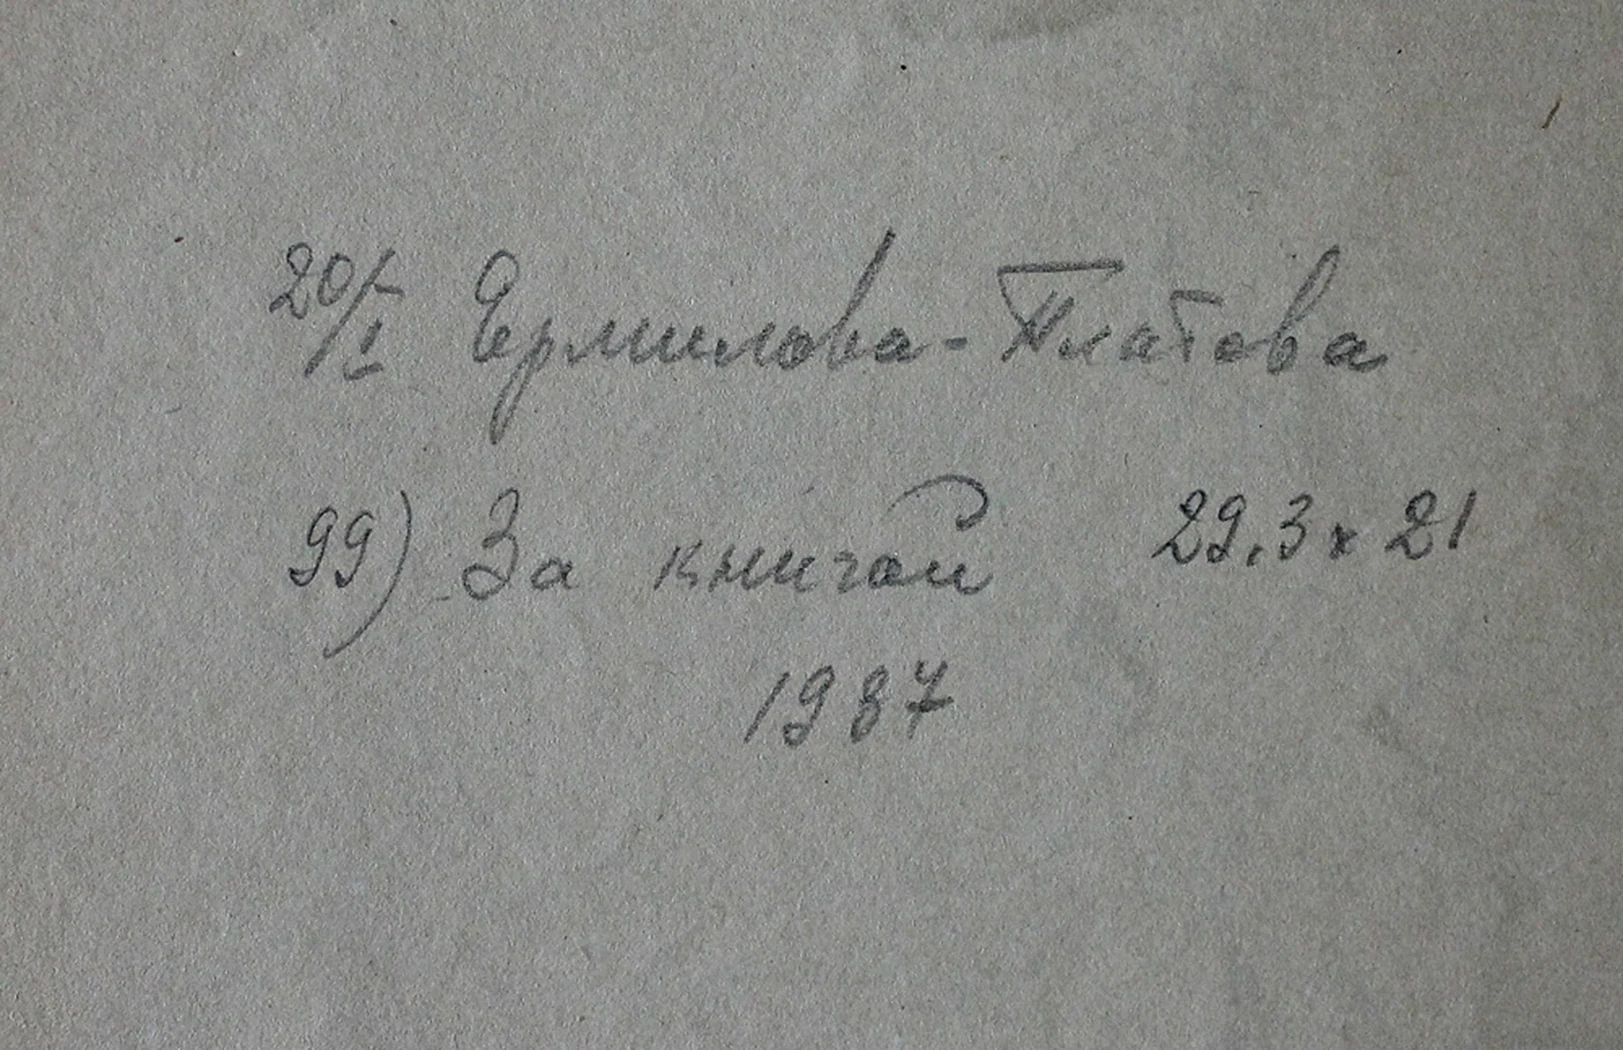 20/I Ермилова-Платова
99) За книгой 29.3 x 21
1987